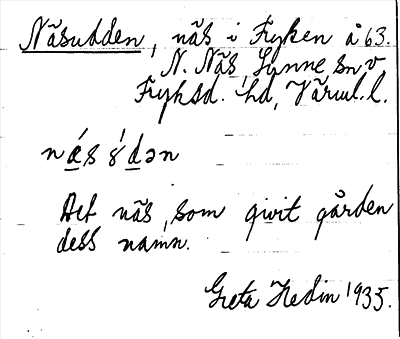 Näsudden, näs i Fryken å 63.
N. Näs, Sunne sn v
Fryksd. hd, Värml. l.
nás ɤ́dən
Det näs, som givit gården
dess namn.
Greta Hedin 1935.